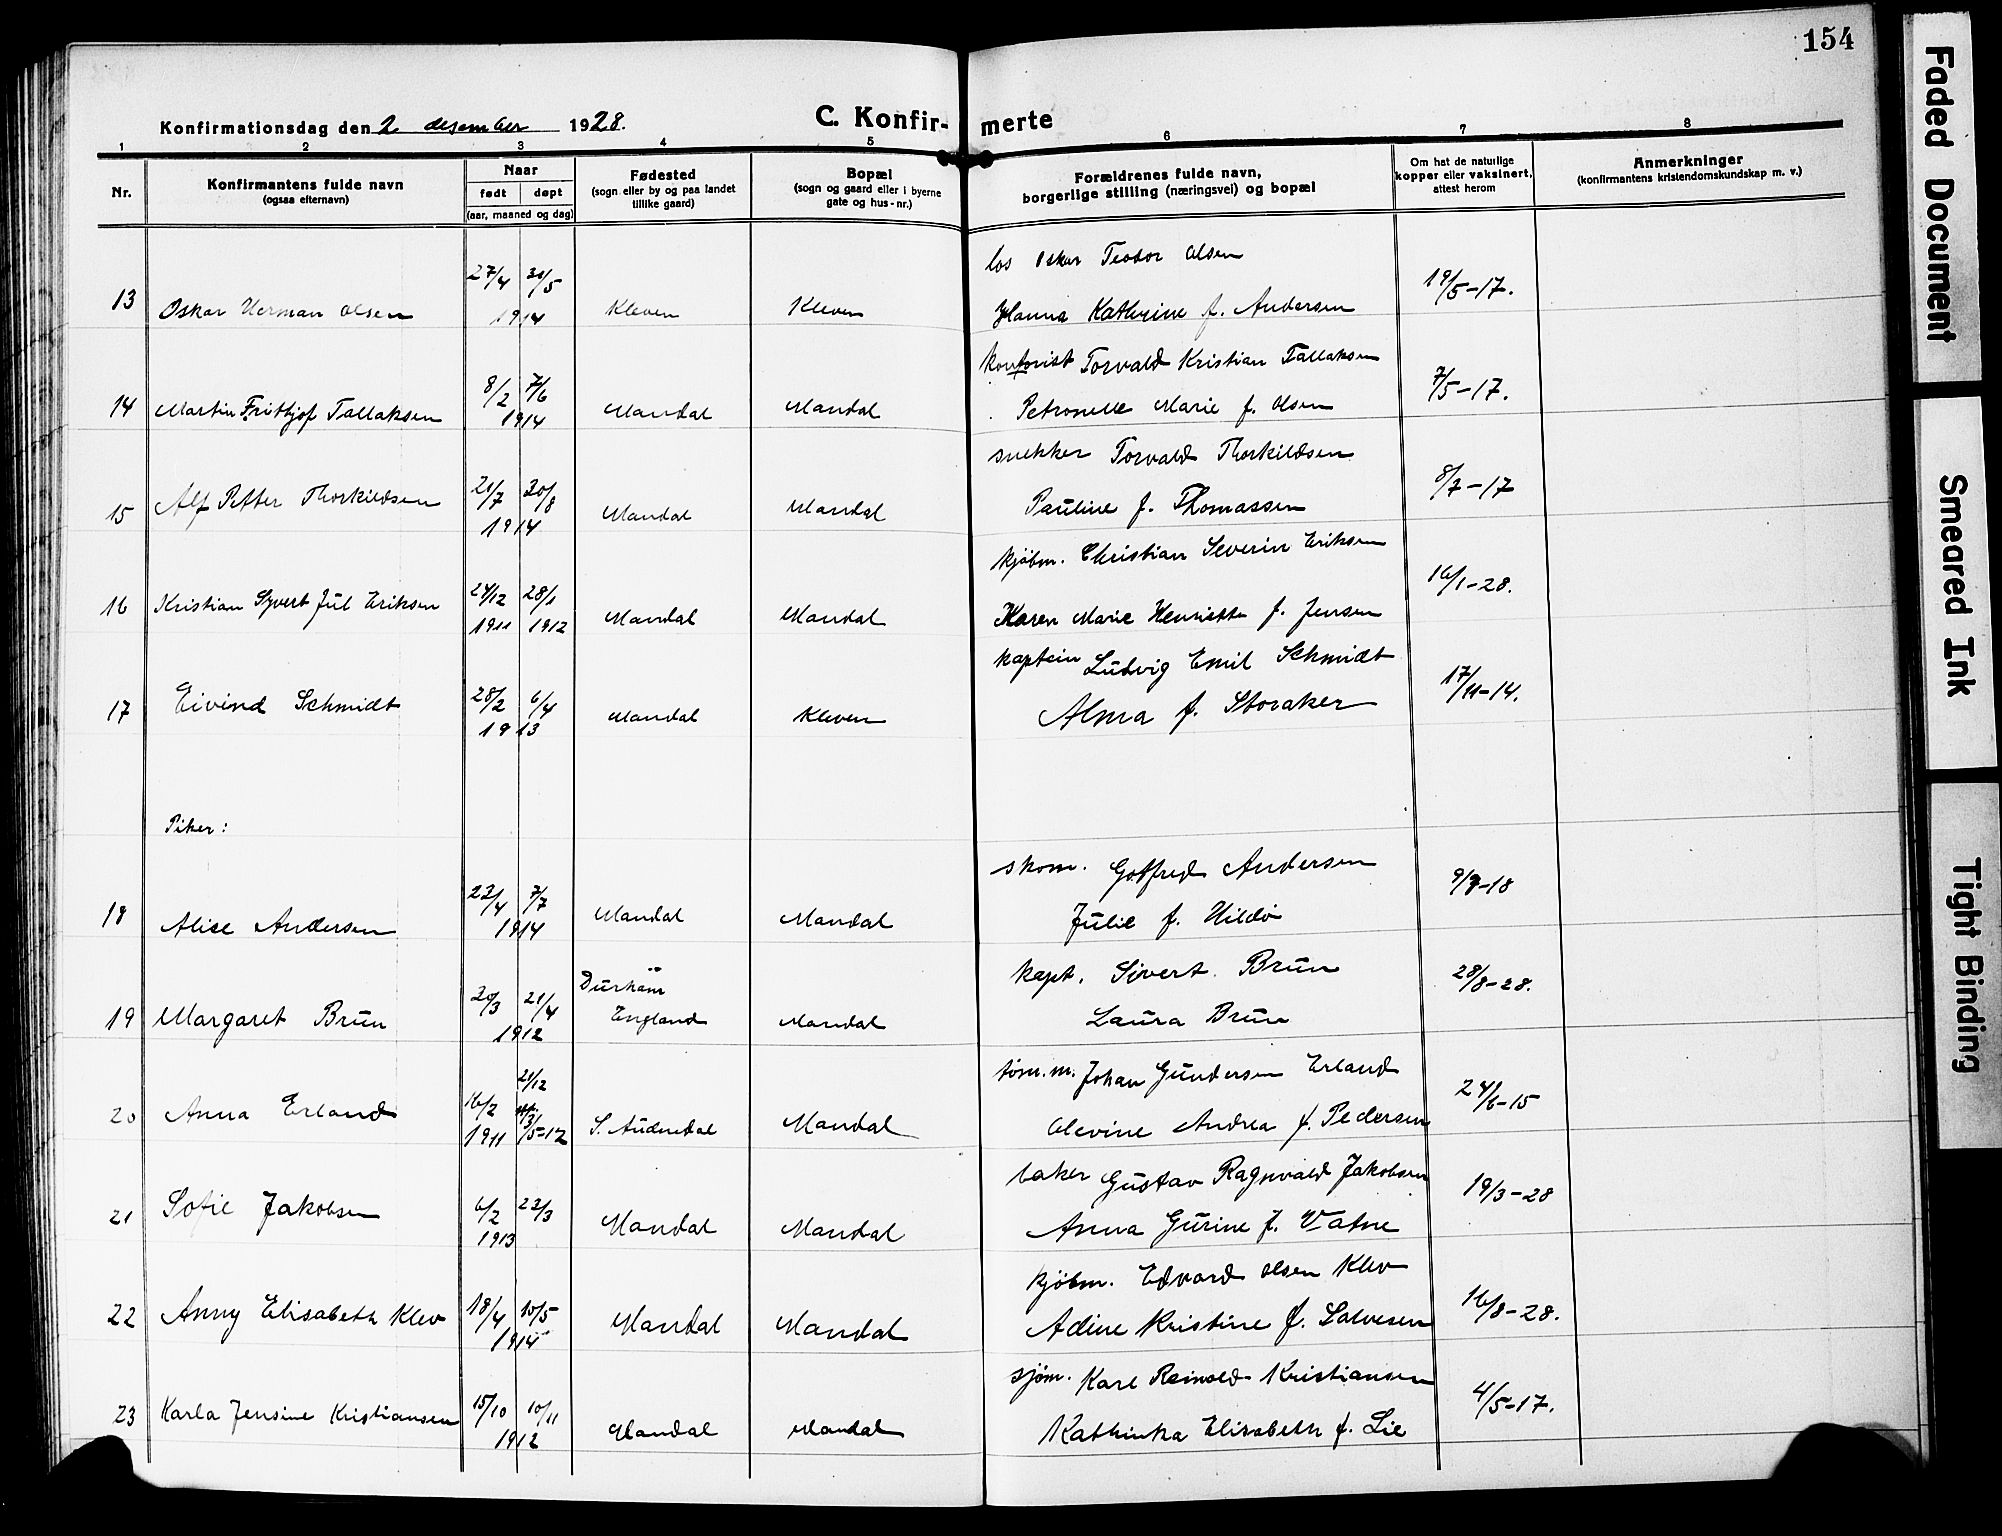 154
Konfirmationsdag den 2 desember 1928.
C. Konfir-merte
1 2 3 4 5 6 7 8
Nr.
Konfirmantens fulde navn
(ogsaa efternavn)
Naar
født døpt
(aar, maaned og dag)
Fødested
(sogn eller by og paa landet
tillike gaard)
Bopæl
(sogn og gaard eller i byerne
gate og hus-nr.)
Forældrenes fulde navn,
borgerlige stilling (næringsvei) og bopæl
Om hat de naturlige
kopper eller vaksinert,
attest herom
Anmerkninger
(konfirmantens kristendomskundskap m. v.)
los Oskar Teodor Olsen
13 Oskar Herman Olsen 27/4 30/5 1914 Kleven Kleven Hanna Kathrine f. Andersen 19/5-17.
kontorist Torvald Kristian Tallaksen
14 Martin Frithjof Tallaksen 8/2 7/6 1914 Mandal Mandal Petronelle Marie f. Olsen 7/5-17.
snekker Torvald Thorkildsen
15 Alf Petter Thorkildsen 21/7 30/8 1914 Mandal Mandal Pauline f. Thomassen 8/7-17
kjøbm. Christian Severin Eriksen
16 Kristian Syvert Jul Eriksen 24/12 1911 28/1 1912 Mandal Mandal Karen Marie Henriette f. Jensen 16/1-28.
kaptein Ludvig Emil Schmidt
17 Eivind Schmidt 28/2 6/4 1913 Mandal Kleven Alma f. Storaker 17/11-14.
Piker:
skom. Gotfred Andersen
18 Alise Andersen 23/4 7/7 1914 Mandal Mandal Julie f. Hildø 9/7-18
kapt. Sivert Brun
19 Margaret Brun 20/3 21/4 1912 Durham England Mandal Laura Brun 28/8-28.
tøm.m. Johan Gundersen Erland
20 Anna Erland 16/2 1911 21/12 /5-12 S. Audnedal Mandal Olevine Andrea f. Pedersen 24/6-15
baker Gustav Ragnvald Jakobsen
21 Sofie Jakobsen 6/2 23/3 1913 Mandal Mandal Anna Gurine f. Vatne 19/3-28
kjøbm. Edvard Olsen Klev
22 Anny Elisabeth Klev 18/4 10/5 1914 Mandal Mandal Adine Kristine f. Salvesen 16/8-28.
sjøm. Karl Reinold Kristiansen
23 Karla Jensine Kristiansen 15/10 10/11 1912 Mandal Mandal Kathinka Elisabeth f. Lie 4/5-17.
Faded Document
Smeared Ink
Tight Binding